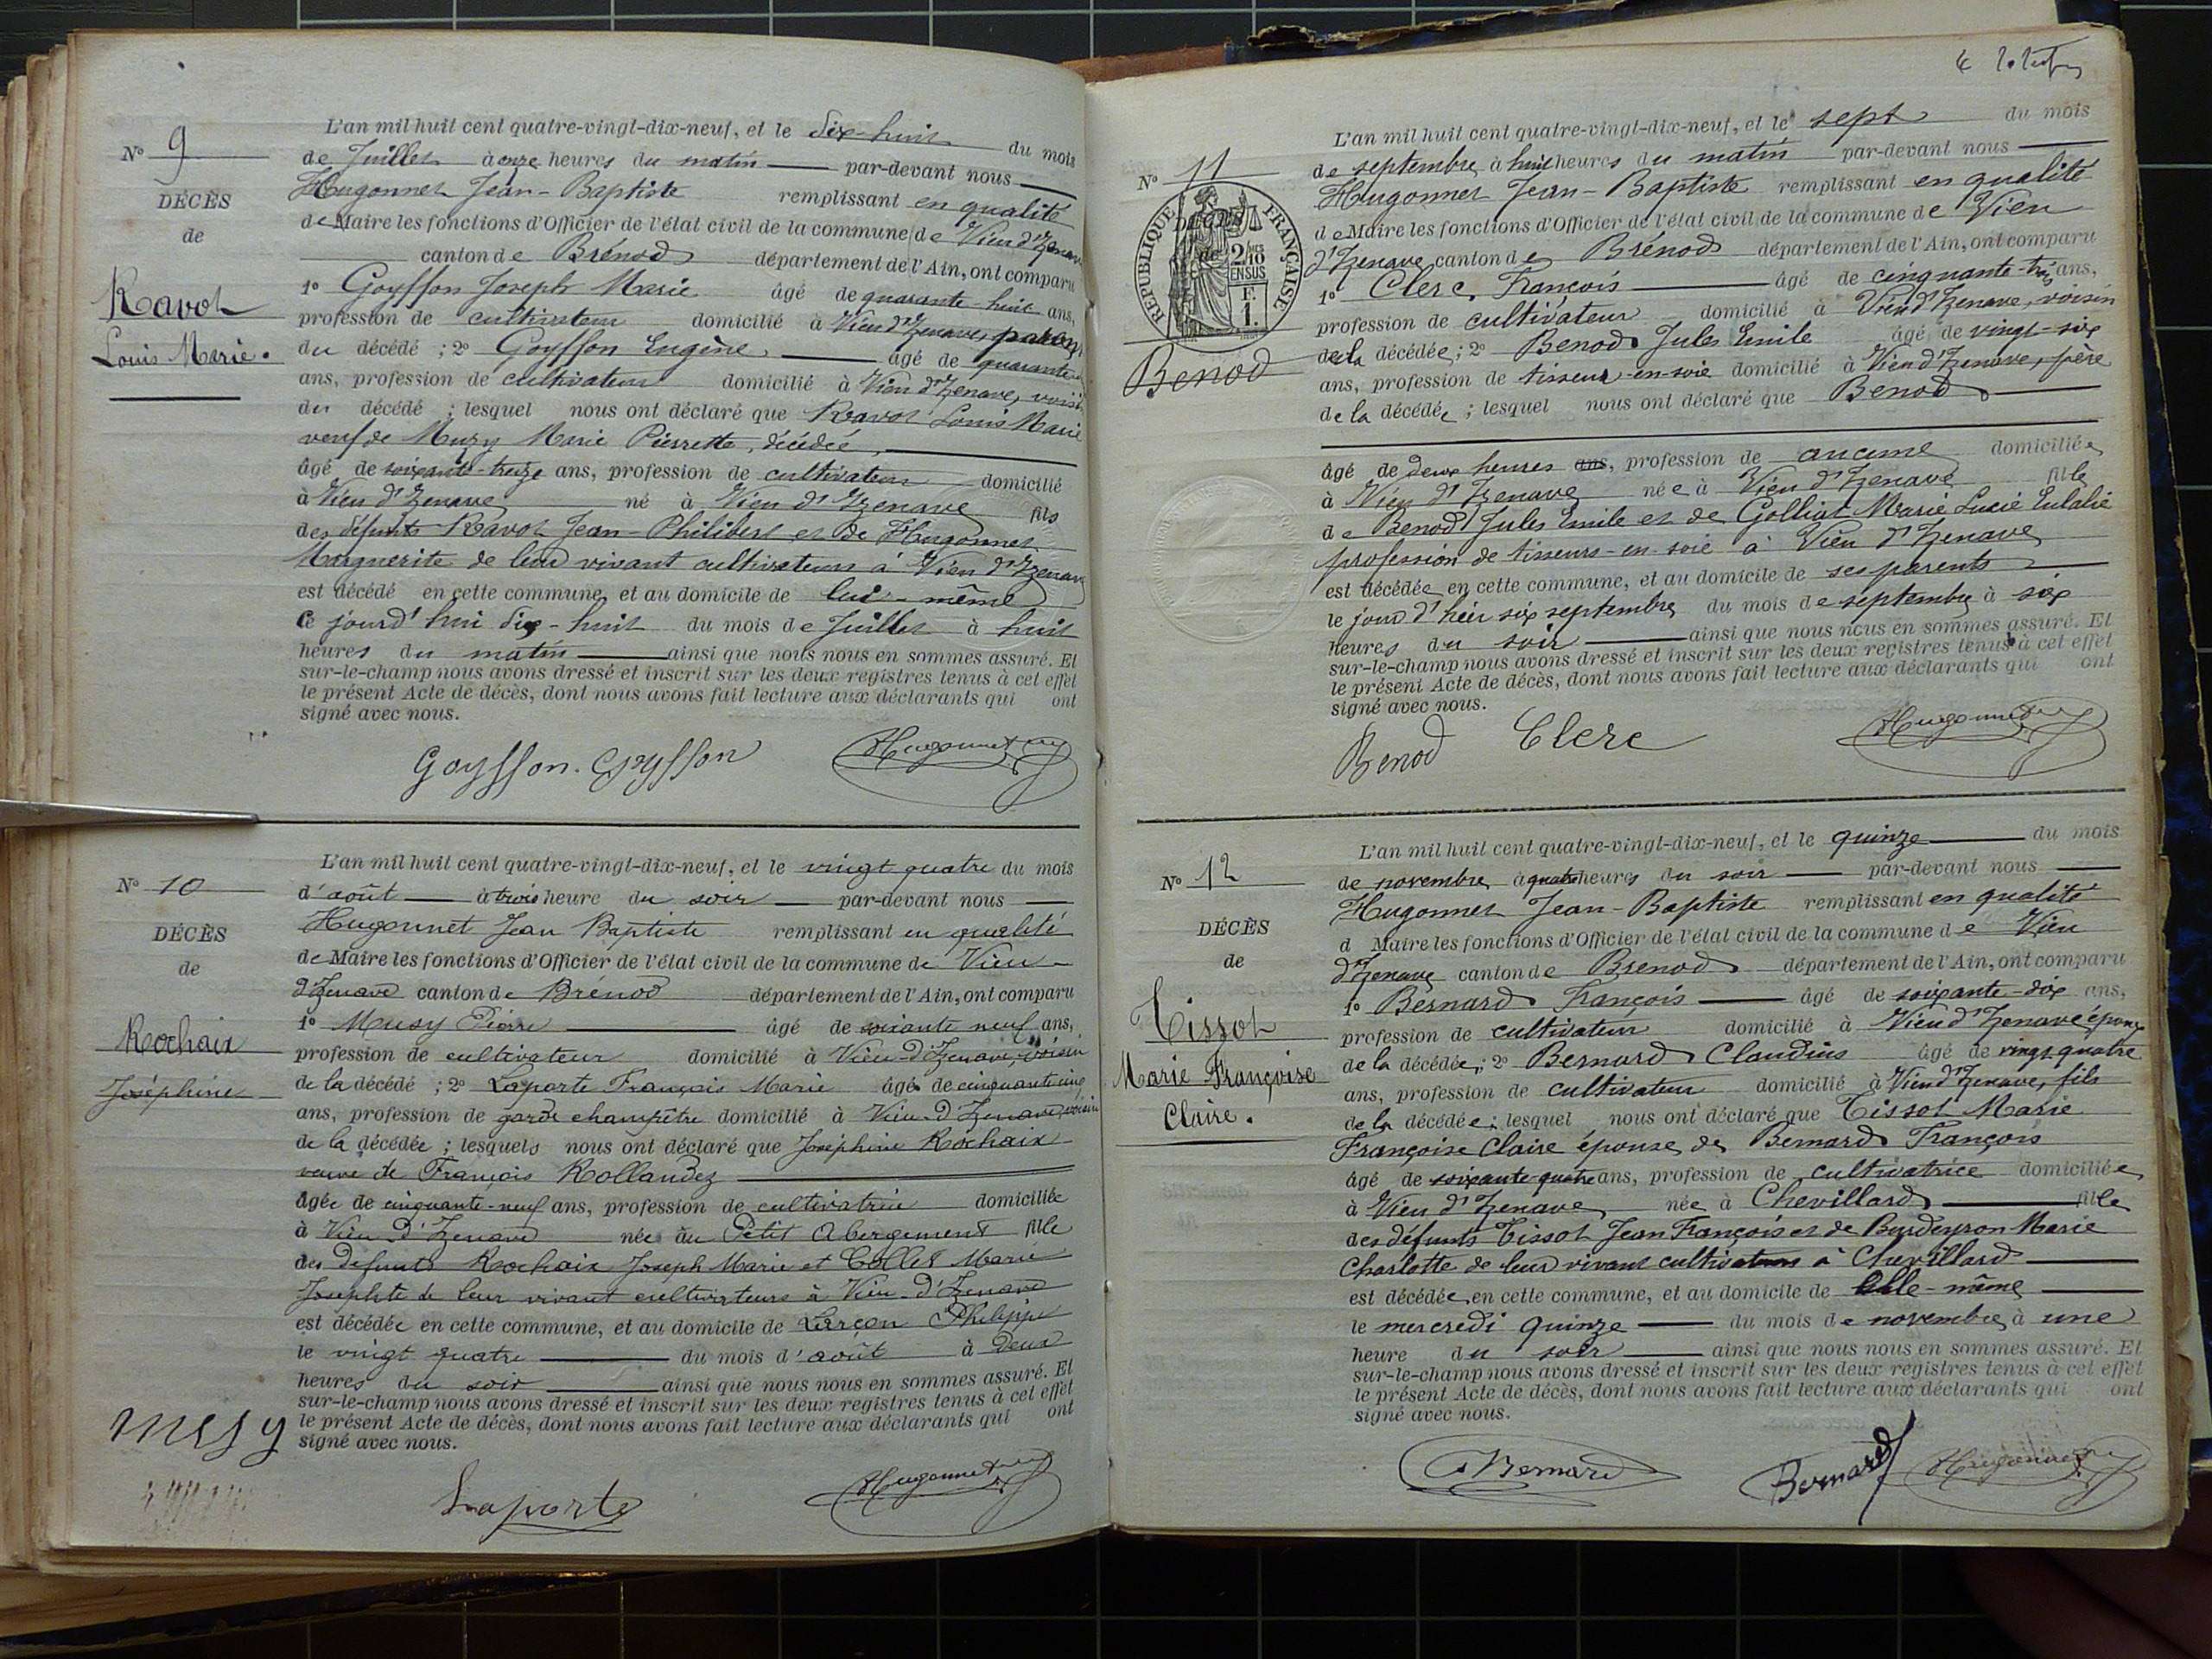 N° 9
DÉCÈS
de
Ravot
Louis Marie.
L'an mil huit cent quatre-vingt-dix-neuf, et le dix-huit du mois
de Juillet à onze heures du matin par-devant nous
Hugonnet Jean-Baptiste remplissant en qualité
de Maire les fonctions d'Officier de l'état civil de la commune de Vieu d'Izenave
canton de Brénod département de l'Ain, ont comparu
1° Goyffon Joseph Marie âgé de quarante-huit ans,
profession de cultivateur domicilié à Vieu d'Izenave, parent
du décédé ; 2° Goyffon Eugène, âgé de quarante
ans, profession de cultivateur domicilié à Vieu d'Izenave, voisin
du décédé ; lesquel nous ont déclaré que Ravot Louis Marie
veuf de Muzy Marie Pierrette, décédée,
âgé de soixante-treize ans, profession de cultivateur domicilié
à Vieu d'Izenave né à Vieu d'Izenave fils
des défunts Ravot Jean-Philibert et de Hugonnet
Marguerite de leur vivant cultivateurs à Vieu d'Izenave
est décédé en cette commune, et au domicile de lui-même
ce jourd'hui dix-huit du mois de Juillet à huit
heures du matin ainsi que nous nous en sommes assuré. Et
sur-le-champ nous avons dressé et inscrit sur les deux registres tenus à cet effet
le présent Acte de décès, dont nous avons fait lecture aux déclarants qui ont
signé avec nous.
Goyffon. Goyffon Hugonnet
N° 10
DÉCÈS
de
Rochaix
Joséphine
L'an mil huit cent quatre-vingt-dix-neuf, et le vingt quatre du mois
d'août à trois heure du soir par-devant nous
Hugonnet Jean Baptiste remplissant en qualité
de Maire les fonctions d'Officier de l'état civil de la commune de Vieu-
d'Izenave canton de Brénod département de l'Ain, ont comparu
1° Musy Pierre âgé de soixante neuf ans,
profession de cultivateur domicilié à Vieu-d'Izenave, voisin
de la décédé ; 2° Laporte François Marie âgé de cinquante cinq
ans, profession de garde champêtre domicilié à Vieu-d'Izenave, voisin
de la décédée ; lesquels nous ont déclaré que Joséphine Rochaix
veuve de François Rollandez
âgée de cinquante-neuf ans, profession de cultivatrice domiciliée
à Vieu-d'Izenave née au Petit Abergement fille
des défunts Rochaix Joseph Marie et Collet Marie
Josephte de leur vivant cultivateurs à Vieu-d'Izenave
est décédée en cette commune, et au domicile de Larçon Philippe
le vingt quatre du mois d'août à deux
heures du soir ainsi que nous nous en sommes assuré. Et
sur-le-champ nous avons dressé et inscrit sur les deux registres tenus à cet effet
le présent Acte de décès, dont nous avons fait lecture aux déclarants qui ont
signé avec nous.
Laporte Hugonnet
N° 11
DÉCÈS
de
RÉPUBLIQUE FRANÇAISE
2/10 EN SUS
F. 1.
Benod
L'an mil huit cent quatre-vingt-dix-neuf, et le sept du mois
de septembre à huit heures du matin par-devant nous
Hugonnet Jean-Baptiste remplissant en qualité
de Maire les fonctions d'Officier de l'état civil de la commune de Vieu
d'Izenave canton de Brénod département de l'Ain, ont comparu
1° Clerc François âgé de cinquante-trois ans,
profession de cultivateur domicilié à Vieu d'Izenave, voisin
de la décédée ; 2° Benod Jules Emile âgé de vingt-six
ans, profession de tisseur-en-soie domicilié à Vieu d'Izenave, père
de la décédée ; lesquel nous ont déclaré que Benod
âgé de deux heures ans, profession de aucune domiciliée
à Vieu d'Izenave née à Vieu d'Izenave fille
de Benod Jules Emile et de Golliat Marie Lucie Eulalie
profession de tisseurs-en-soie à Vieu d'Izenave
est décédée en cette commune, et au domicile de ses parents
le jour d'hier six septembre du mois de septembre à six
heures du soir ainsi que nous nous en sommes assuré. Et
sur-le-champ nous avons dressé et inscrit sur les deux registres tenus à cet effet
le présent Acte de décès, dont nous avons fait lecture aux déclarants qui ont
signé avec nous.
Benod Clerc Hugonnet
N° 12
DÉCÈS
de
Tissot
Marie Françoise
Claire.
L'an mil huit cent quatre-vingt-dix-neuf, et le quinze du mois
de novembre à quatre heures du soir par-devant nous
Hugonnet Jean-Baptiste remplissant en qualité
d Maire les fonctions d'Officier de l'état civil de la commune de Vieu
d'Izenave canton de Brenod département de l'Ain, ont comparu
1° Bernard François âgé de soixante-dix ans,
profession de cultivateur domicilié à Vieu d'Izenave époux
de la décédée ; 2° Bernard Claudius âgé de vingt quatre
ans, profession de cultivateur domicilié à Vieu d'Izenave, fils
de la décédée ; lesquel nous ont déclaré que Tissot Marie
Françoise Claire épouse de Bernard François
âgé de soixante-quatre ans, profession de cultivatrice domiciliée
à Vieu d'Izenave née à Chevillard fille
des défunts Tissot Jean François et de Burdeyron Marie
Charlotte de leur vivant cultivateurs à Chevillard
est décédée en cette commune, et au domicile de elle-même
le mercredi quinze du mois de novembre à une
heure du soir ainsi que nous nous en sommes assuré. Et
sur-le-champ nous avons dressé et inscrit sur les deux registres tenus à cet effet
le présent Acte de décès, dont nous avons fait lecture aux déclarants qui ont
signé avec nous.
Bernard Bernard Hugonnet